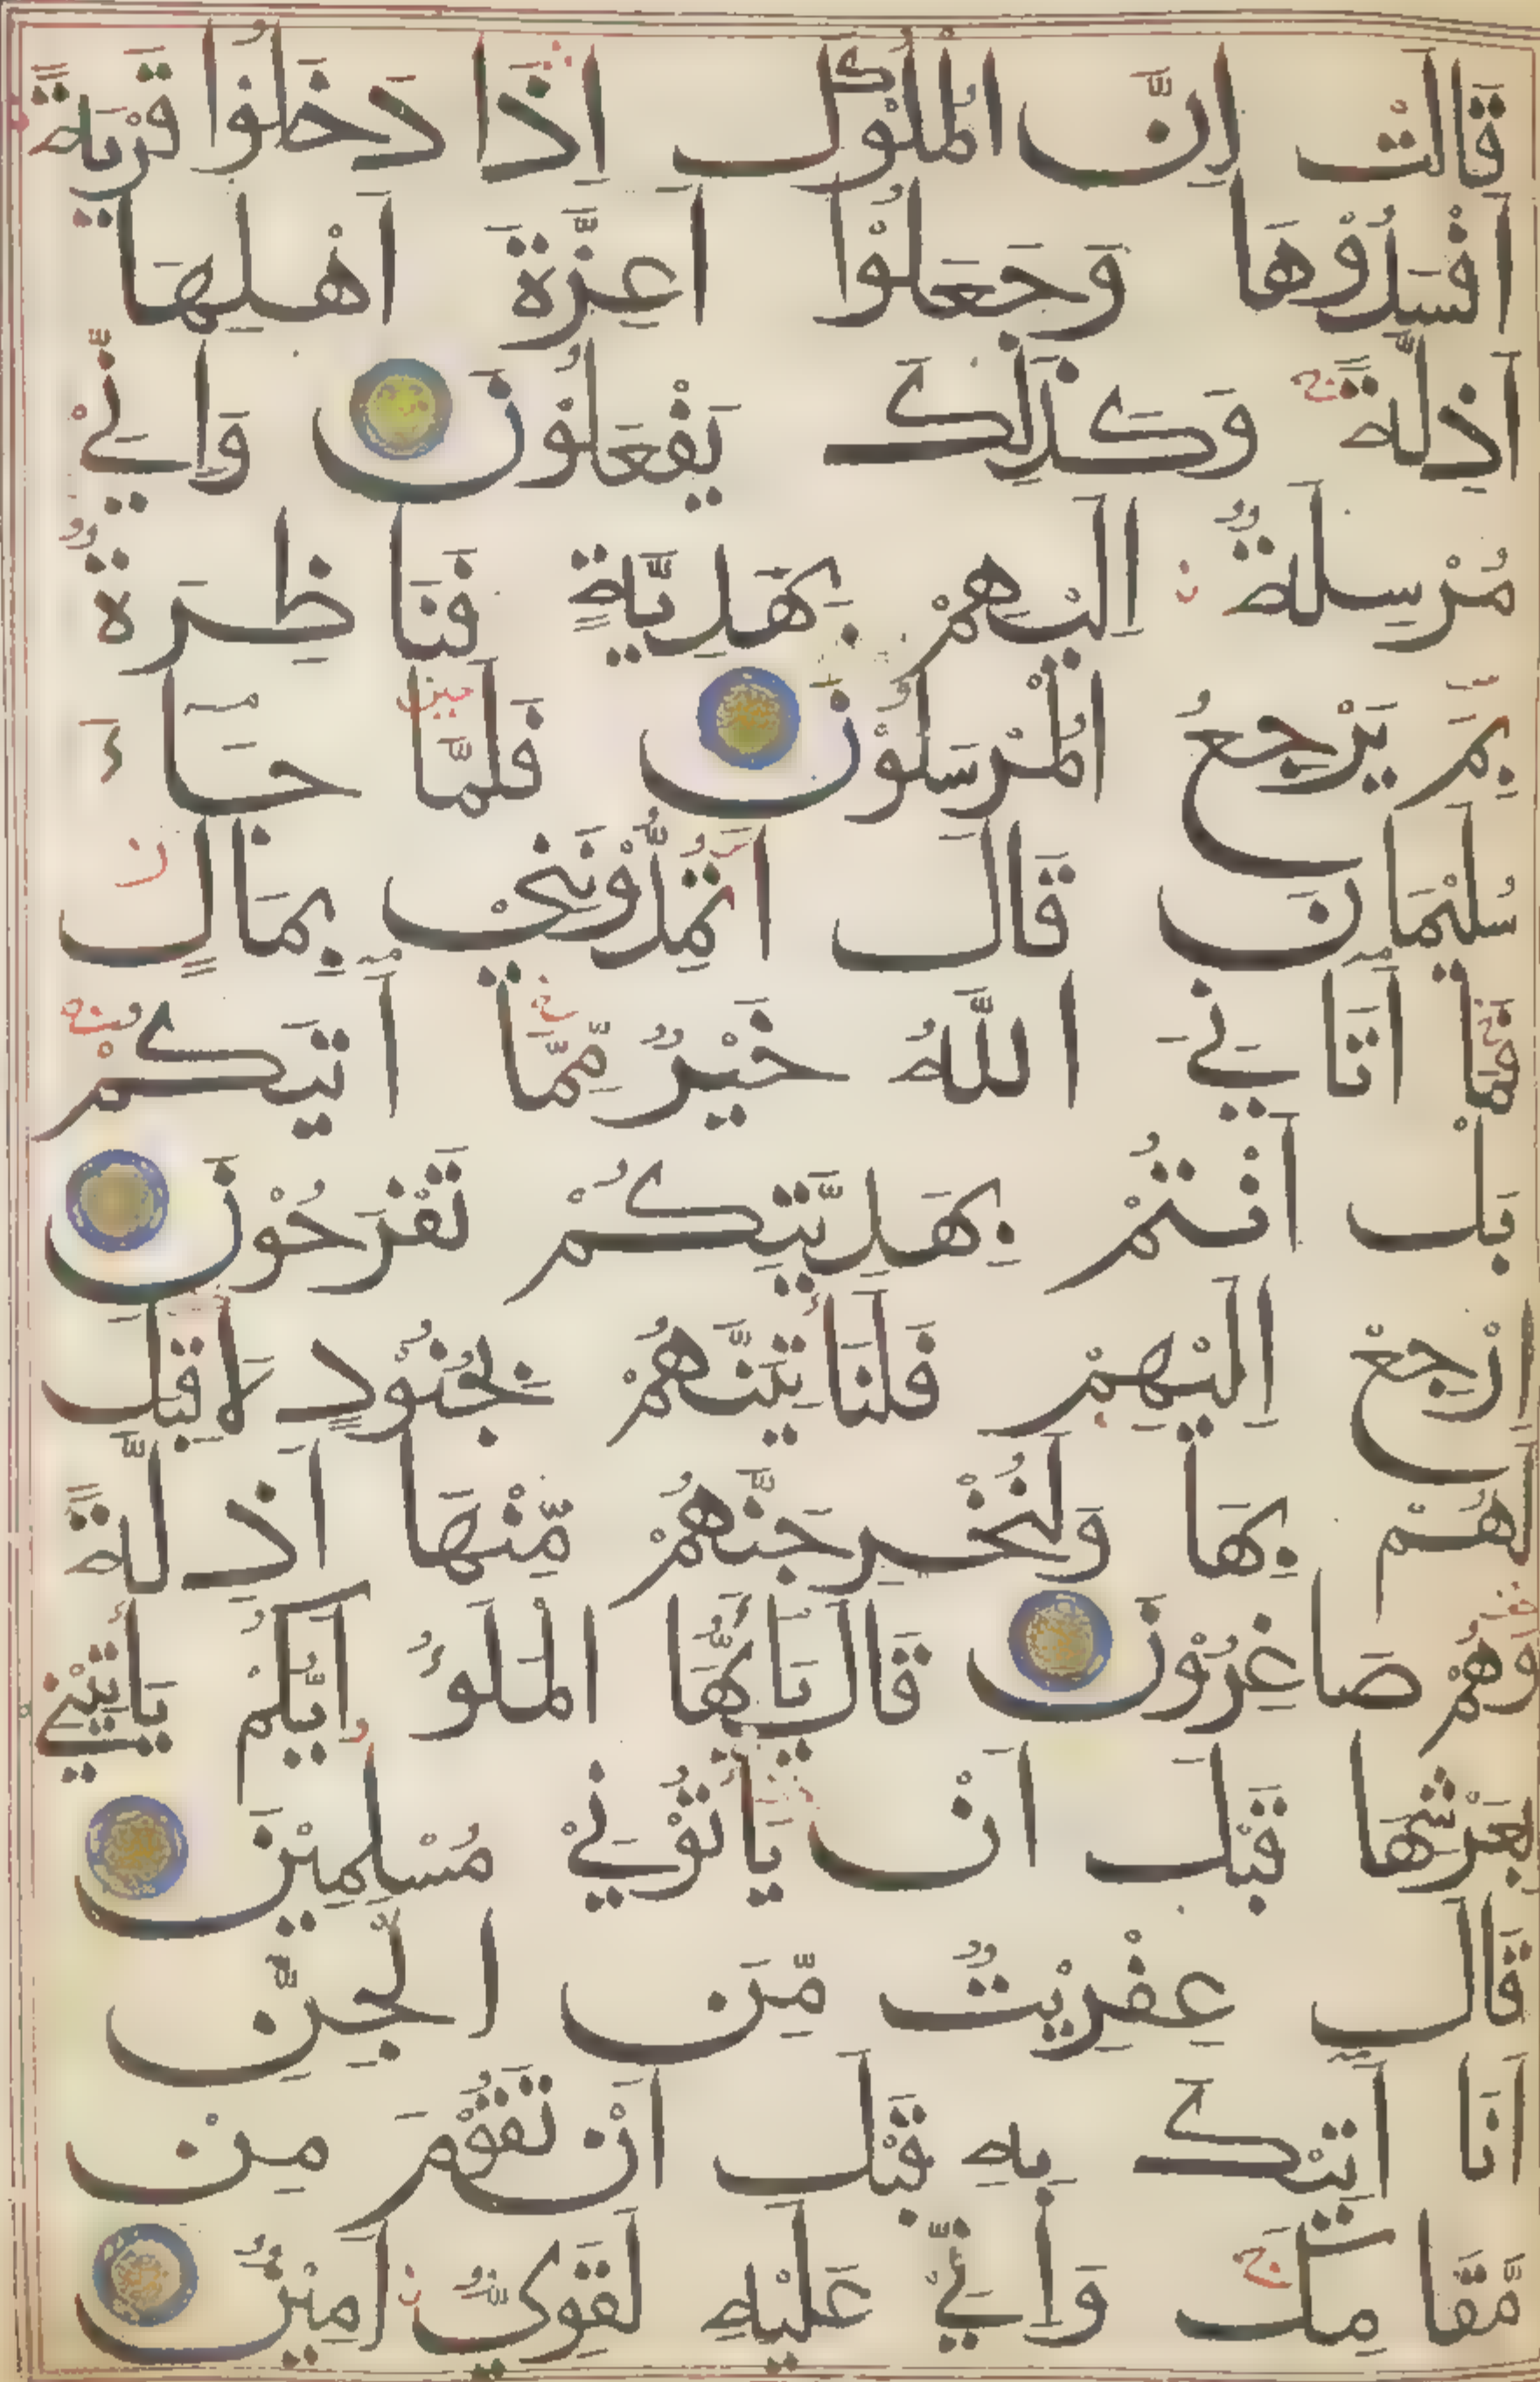 قَالَتْ اِنَّ الْمُلُوْكَ اِذَا دَخَلُوْا قَرْيَةً
اَفْسَدُوْهَا وَجَعَلُوْا اَعِزَّةَ اَهْلِهَا
اَذِلَّةً وَكَذٰلِكَ يَفْعَلُوْنَ وَاِنِّيْ
مُرْسِلَةٌ اِلَيْهِمْ بِهَدِيَّةٍ فَنَاظِرَةٌ
بِمَ يَرْجِعُ الْمُرْسَلُوْنَ فَلَمَّا جَآءَ
سُلَيْمَانَ قَالَ اَتُمِدُّوْنَنِيْ بِمَالٍ
فَمَا اٰتَانِيَ اللّٰهُ خَيْرٌ مِّمَّا اٰتٰيكُمْ
بَلْ اَنْتُمْ بِهَدِيَّتِكُمْ تَفْرَحُوْنَ
اِرْجِعْ اِلَيْهِمْ فَلَنَأْتِيَنَّهُمْ بِجُنُوْدٍ لَا قِبَلَ
لَهُمْ بِهَا وَلَنُخْرِجَنَّهُمْ مِّنْهَا اَذِلَّةً
وَهُمْ صَاغِرُوْنَ قَالَ يَاأَيُّهَا الْمَلَؤُ اَيُّكُمْ يَأْتِيْنِيْ
بِعَرْشِهَا قَبْلَ اَنْ يَأْتُوْنِيْ مُسْلِمِيْنَ
قَالَ عِفْرِيْتٌ مِّنَ الْجِنِّ
اَنَا اٰتِيْكَ بِهٖ قَبْلَ اَنْ تَقُوْمَ مِنْ
مَّقَامِكَ وَاِنِّيْ عَلَيْهِ لَقَوِيٌّ اَمِيْنٌ